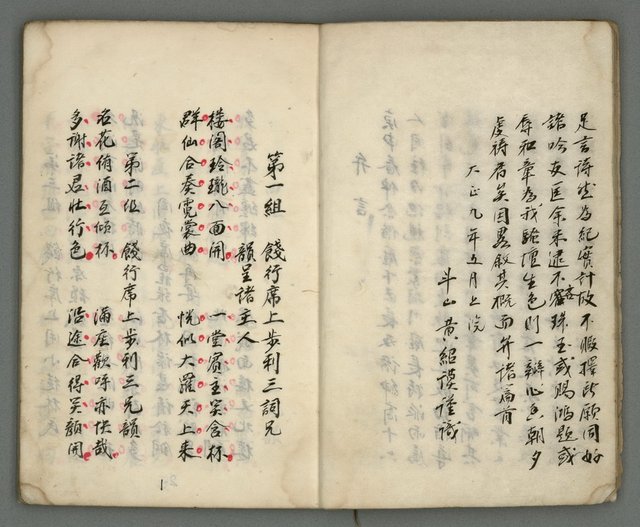 足言詩哉為紀實計故不暇擇此願同好
諸吟友匡余未逮不吝珠玉或賜鴻題或
辱和章為我騷壇生色則一瓣心香朝夕
虔禱君矣因畧敘其概而弁諸篇首
大正九年五月上浣
斗山黃紹謨謹識
第一組 餞行席上步利三詞兄
韻呈諸主人
樓閣玲瓏八面開 一堂賓主笑含杯
群仙合奏霓裳曲 恍似大羅天上來
第二組 餞行席上步利三兄韻
名花侑酒互傾杯 滿座歡呼亦快哉
多謝諸君壯行色 沿途合得笑顏開
1